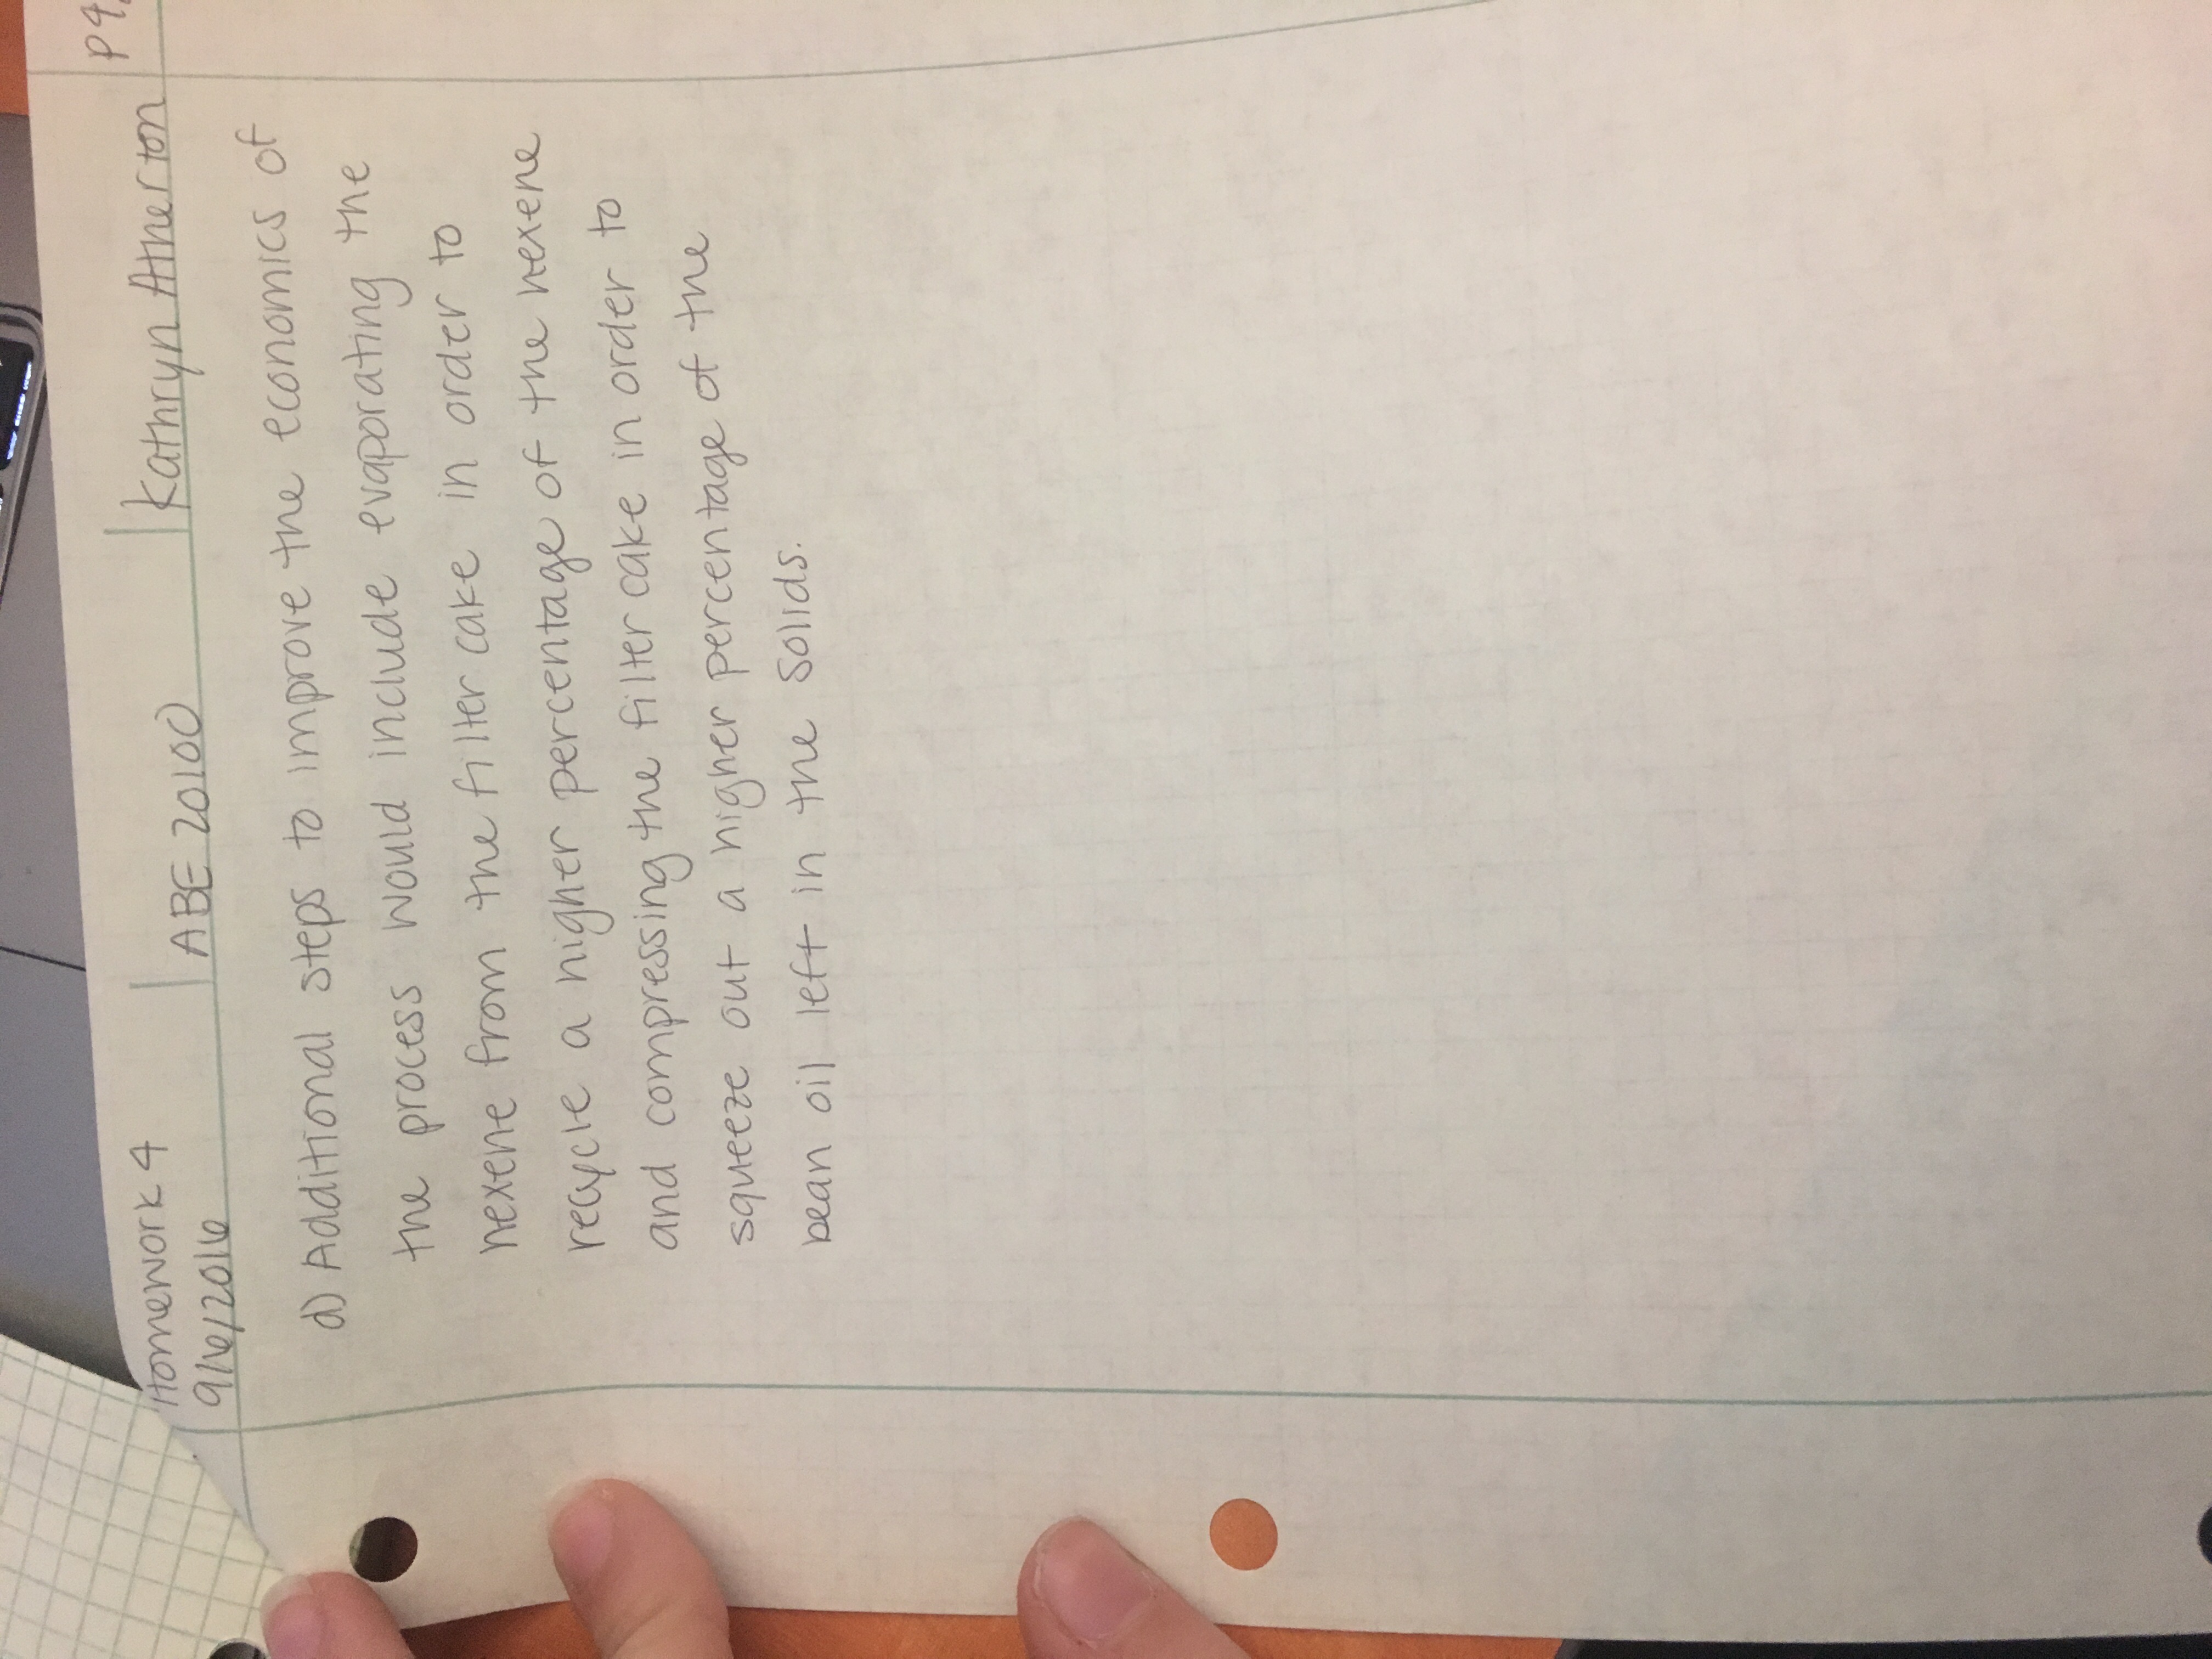 Homework 4
9/6/2016
ABE 20100
Kathryn Atherton
d) Additional steps to improve the economics of
the process would include evaporating the
hexene from the filter cake in order to
recycle a higher percentage of the hexene
and compressing the filter cake in order to
squeeze out a higher percentage of the
bean oil left in the solids.